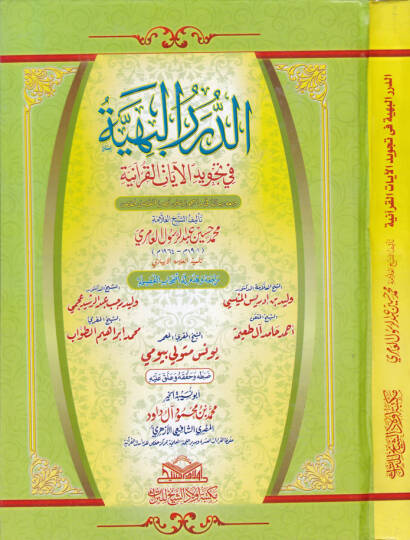 الدرر البهية
في تجويد الآيات القرآنية
تأليف الشيخ العلامة
محمد حسين عبد الرسول العامري
(١٩٠١م - ١٩٦٤م)
الشيخ العلامة الدكتور
وليد بن إدريس المنيسي
الشيخ الدكتور
وليد رجب عبد الرشيد عجمي
الشيخ المتقن
أحمد حامد آل طعيمة
الشيخ المقرئ
محمد إبراهيم الطواب
الشيخ المقرئ المعمر
يونس متولي بيومي
ضبطه وحققه وعلق عليه
محمد بن محمود آل داود
المقرئ الشافعي الأزهري
مكتبة أولاد الشيخ للتراث
الدرر البهية في تجويد الآيات القرآنية
محمد حسين عبد الرسول العامري
مكتبة أولاد الشيخ للتراث